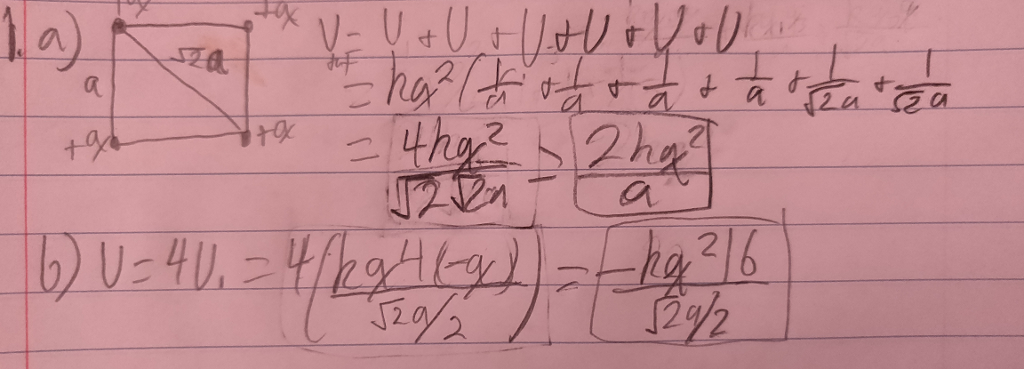 +q +q
1. a) √2a U = U + U + U + U + U + U
a = kq²(1/a + 1/a + 1/a + 1/a + 1/√2a + 1/√2a
+q +q = 4kq²/√2√2a = 2kq²/a
b) U = 4U₁ = 4(kq4(-q)/√2a/2) = -kq²16/√2a/2